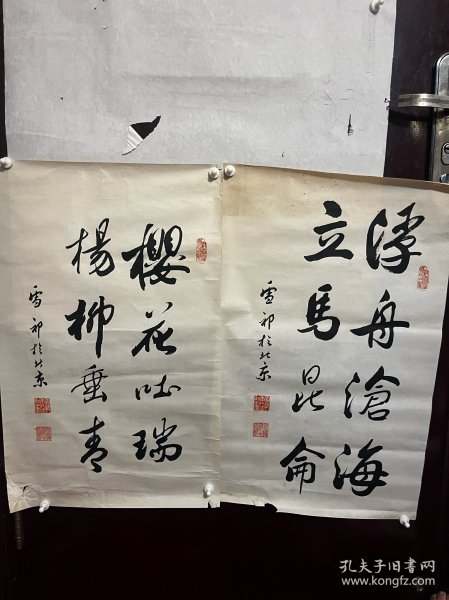 浮舟滄海
立馬昆侖
雪祁於北京
櫻花吐瑞
楊柳垂青
雪祁於北京
孔夫子旧书网
www.kongfz.com